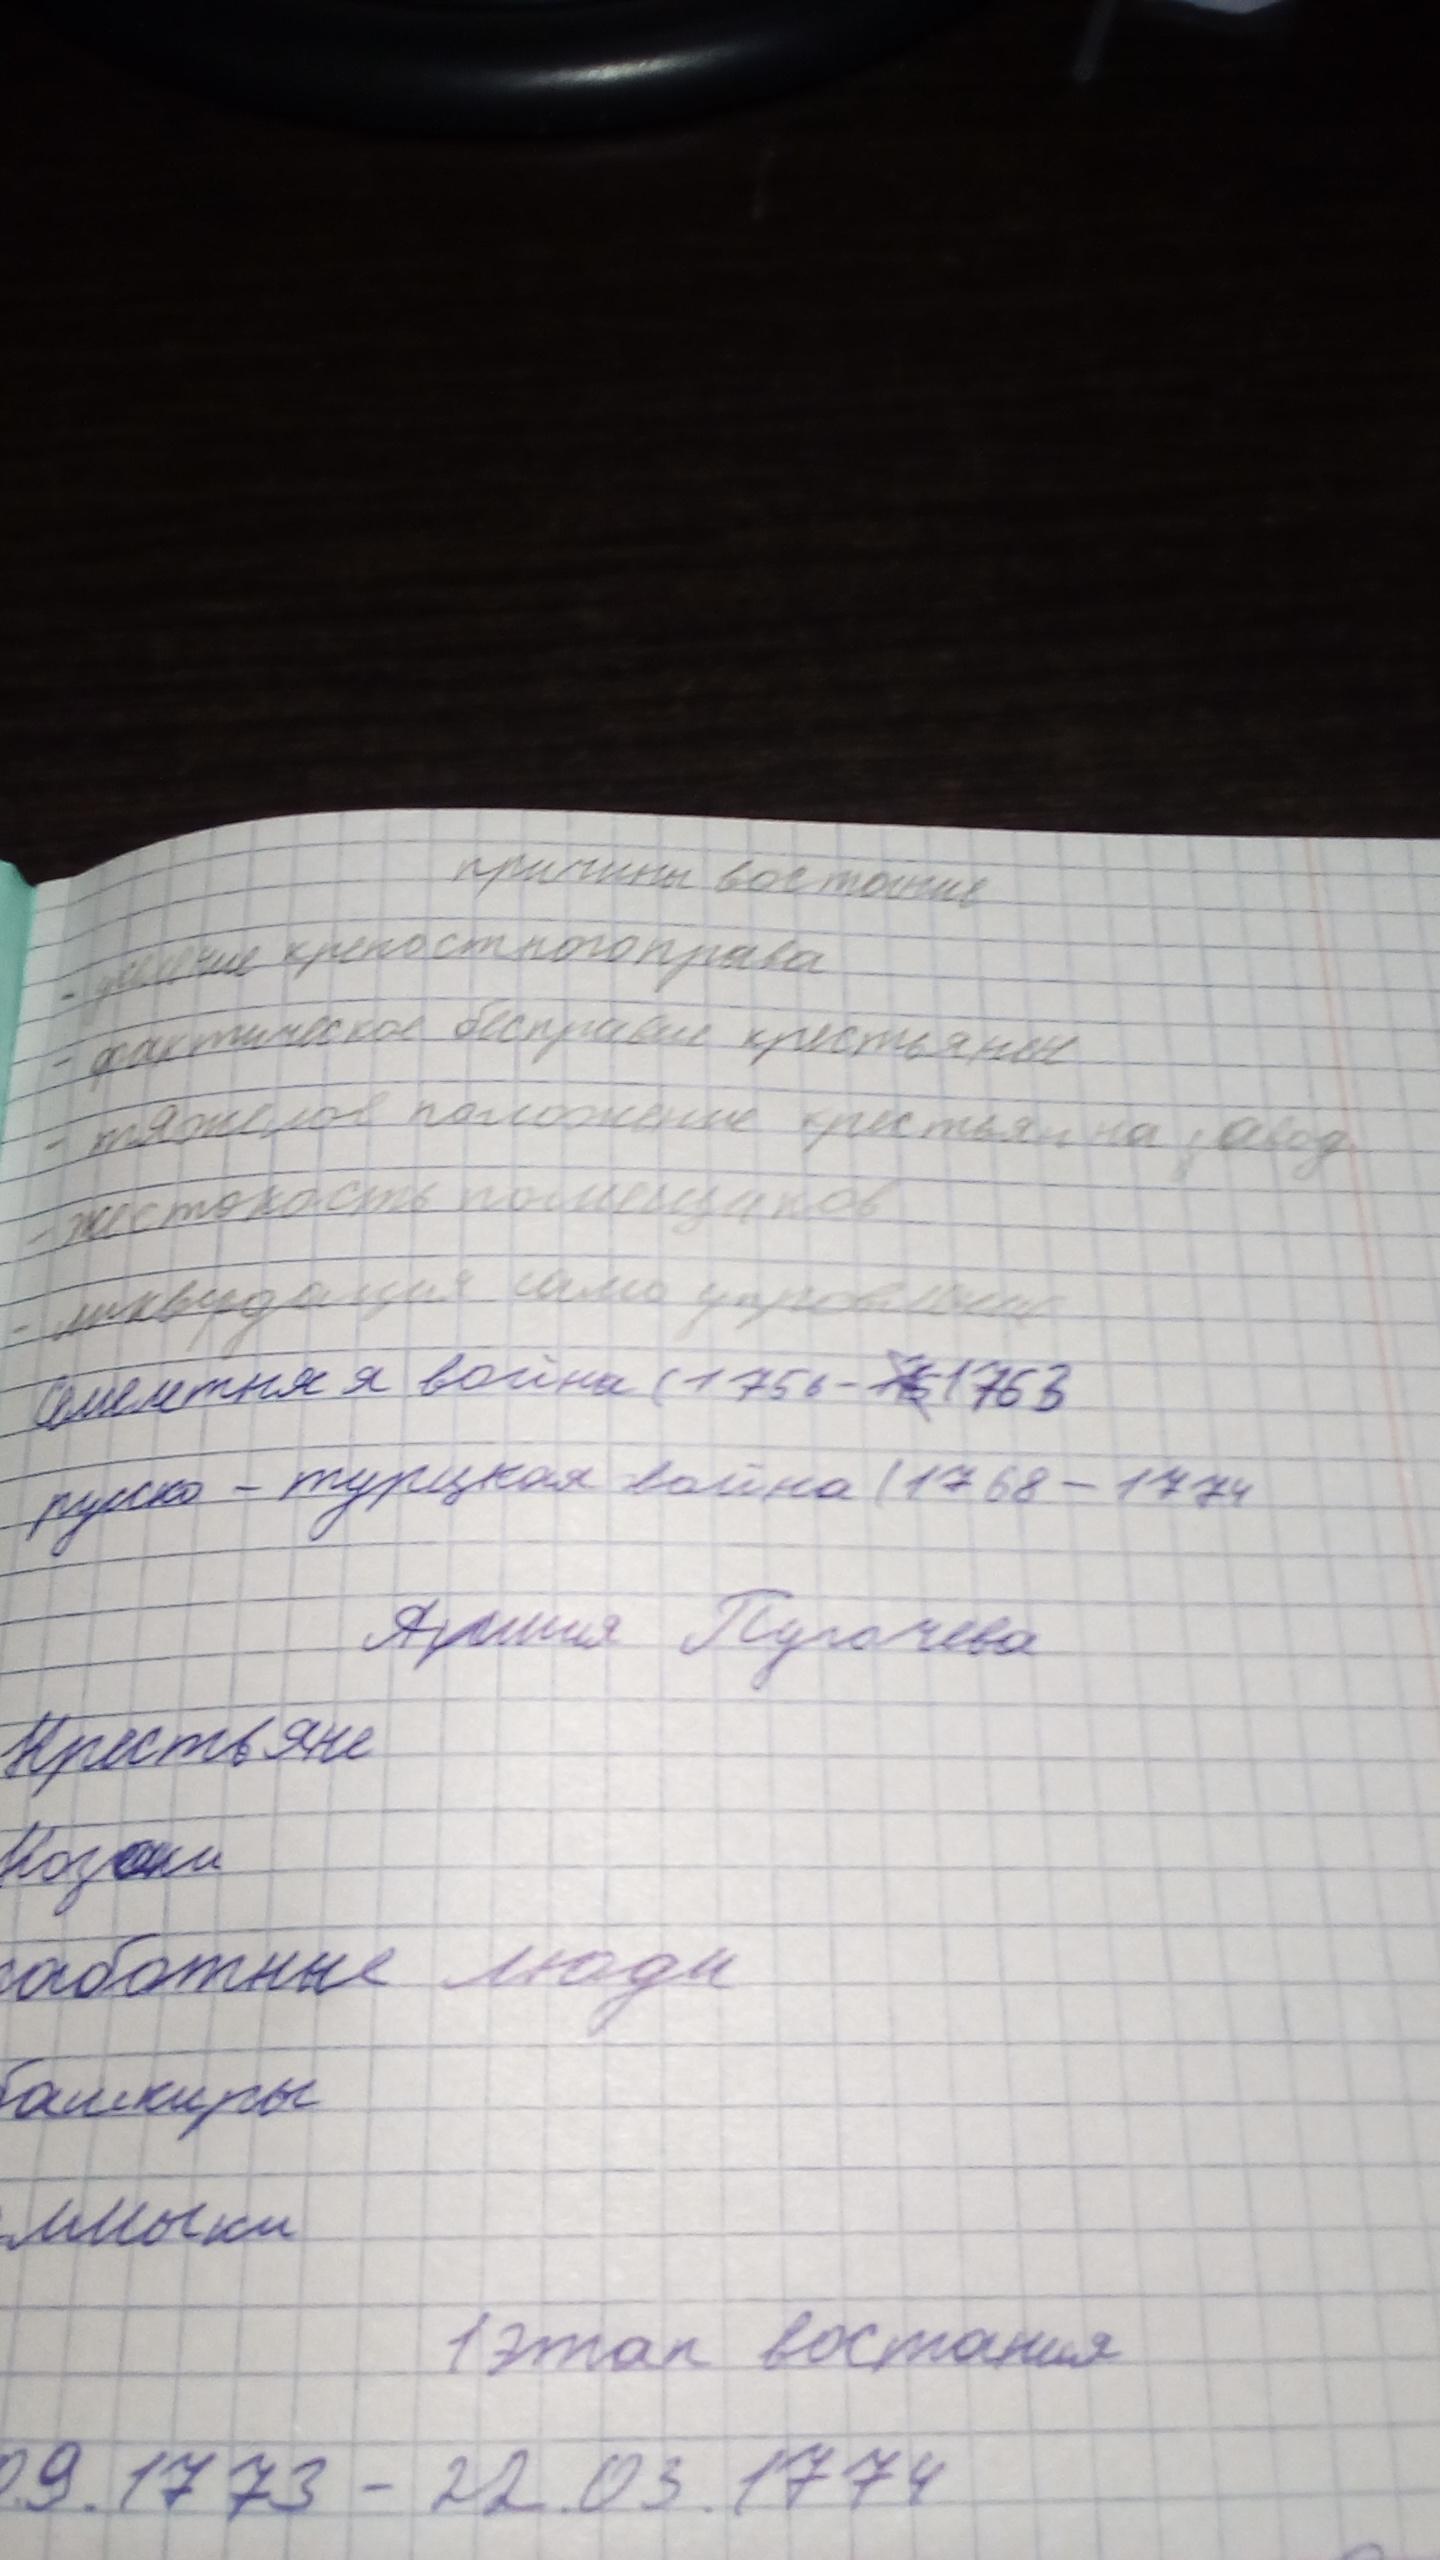 причины востание
- крепостногоправа
- фактическое бесправие крестьянен
- тяжелов положение крестьян на завод
- жестокость помещиков
- ликвидация само управления
Семилтняя война (1756-1763
руско - турцкая война (1768 - 1774
Армия Пугачева
Крестьяне
Козаки
работные люди
башкиры
лмыки
1 этап востания
09.1773 - 22.03.1774